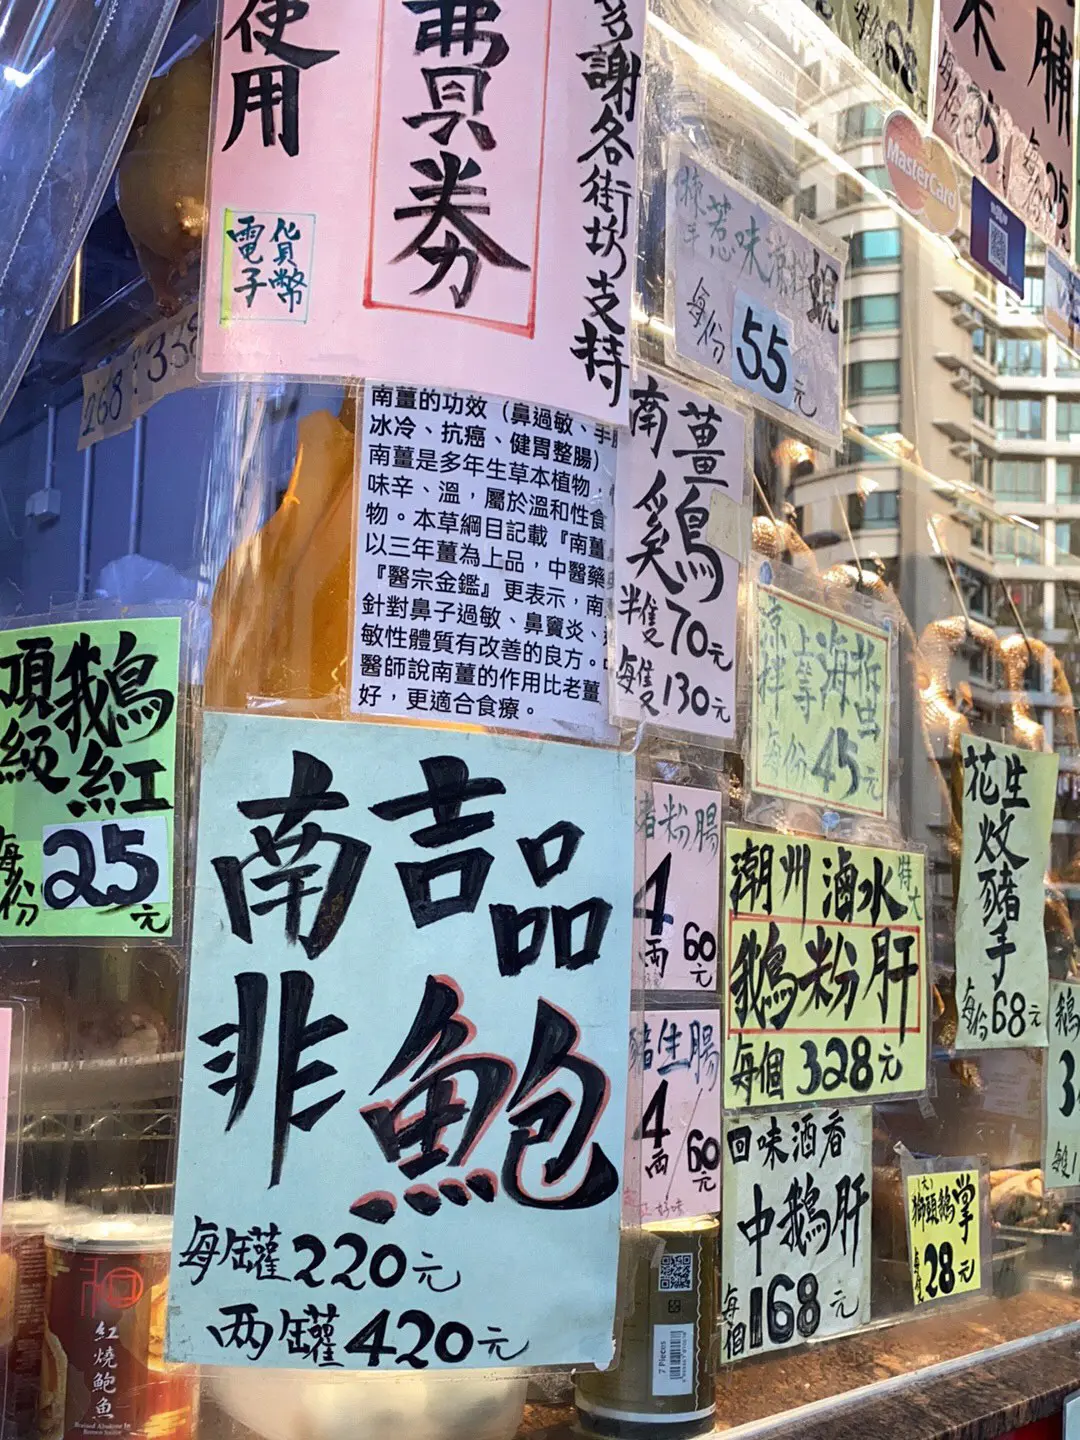 使用
費券
多謝各街坊支持
電子貨幣
MasterCard
268
338
惹味
每份55元
南薑的功效（鼻過敏、手
冰冷、抗癌、健胃整腸）
南薑是多年生草本植物，
味辛、溫，屬於溫和性食
物。本草綱目記載『南薑
以三年薑為上品，中醫藥
『醫宗金鑑』更表示，南
針對鼻子過敏、鼻竇炎、
敏性體質有改善的良方。
醫師說南薑的作用比老薑
好，更適合食療。
南薑鷄
半隻70元
每隻130元
涼拌上等海蜇
每份45元
頂級鵝紅
每份25元
南吉品
非鮑
每罐220元
两罐420元
粉腸
4両60元
豬生腸
4両60元
潮州滷水
特大
鵝粉肝
每個328元
花生炆豬手
每份68元
回味酒香
中鵝肝
每個168元
(大)
獅頭鵝掌
28元
和
紅燒鮑魚
7 Pieces